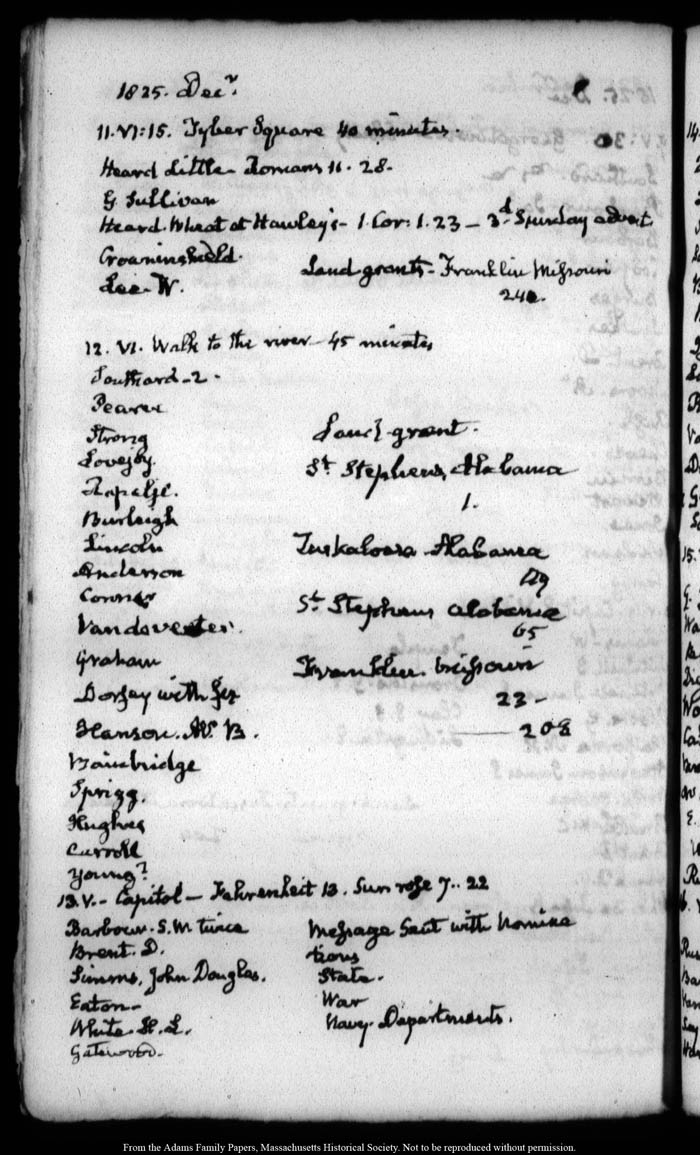 1825. Decr.
11. VI:15. Tyber Square 40 minutes.
Heard Little Romans 11. 28.
G. Sullivan
Heard Wheat at Hawley's - 1. Cor: 1. 23 - 3d Sunday advent
Crowninshield.
Lee. W.
Land grants - Franklin Missouri
240.
12. VI. Walk to the river - 45 minutes
Southard - 2.
Pearce
Strong
Lovejoy.
Rapalje.
Burleigh
Lincoln
Anderson
Conner
Vandeventer.
Graham
Dorsey with
Hanson. A. B.
Bainbridge
Sprigg.
Hughes
Carroll
Young?
Land grant.
St. Stephens, Alabama
1.
Tuskaloosa Alabama
119
St. Stephens Alabama
65
Franklin Missouri
23 -
208
13. V. - Capitol - Fahrenheit 13. Sun rose 7.. 22
Barbour. S. M twice
Brent. D.
Simms, John Douglas.
Eaton -
White. H. L.
Gatewood.
Message sent with Nomina
tions
State.
War
Navy. Departments.
From the Adams Family Papers, Massachusetts Historical Society. Not to be reproduced without permission.